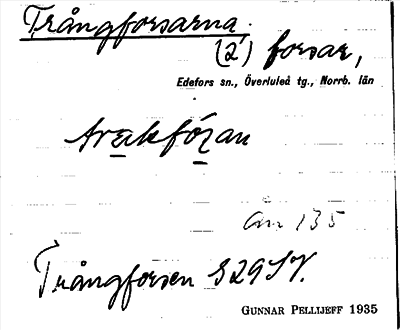 Trångforsarna
(2) forsar,
Edefors sn., Överluleå tg., Norrb. län
Än 135
Trångforsen S29SV.
GUNNAR PELLIJEFF 1935